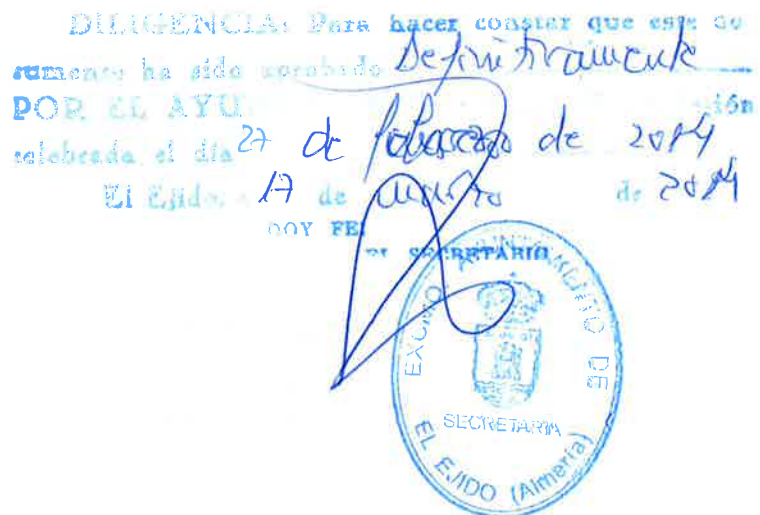 DILIGENCIA: Para hacer constar que este do
cumento ha sido aprobado Definitivamente
POR EL AYU ión
celebrada el día 27 de febrero de 2014
El Ejido, 17 de de 2014
DOY FE:
EL SECRETARIO
EXCMO. AYUNTAMIENTO DE
SECRETARIA
EL EJIDO (Almería)